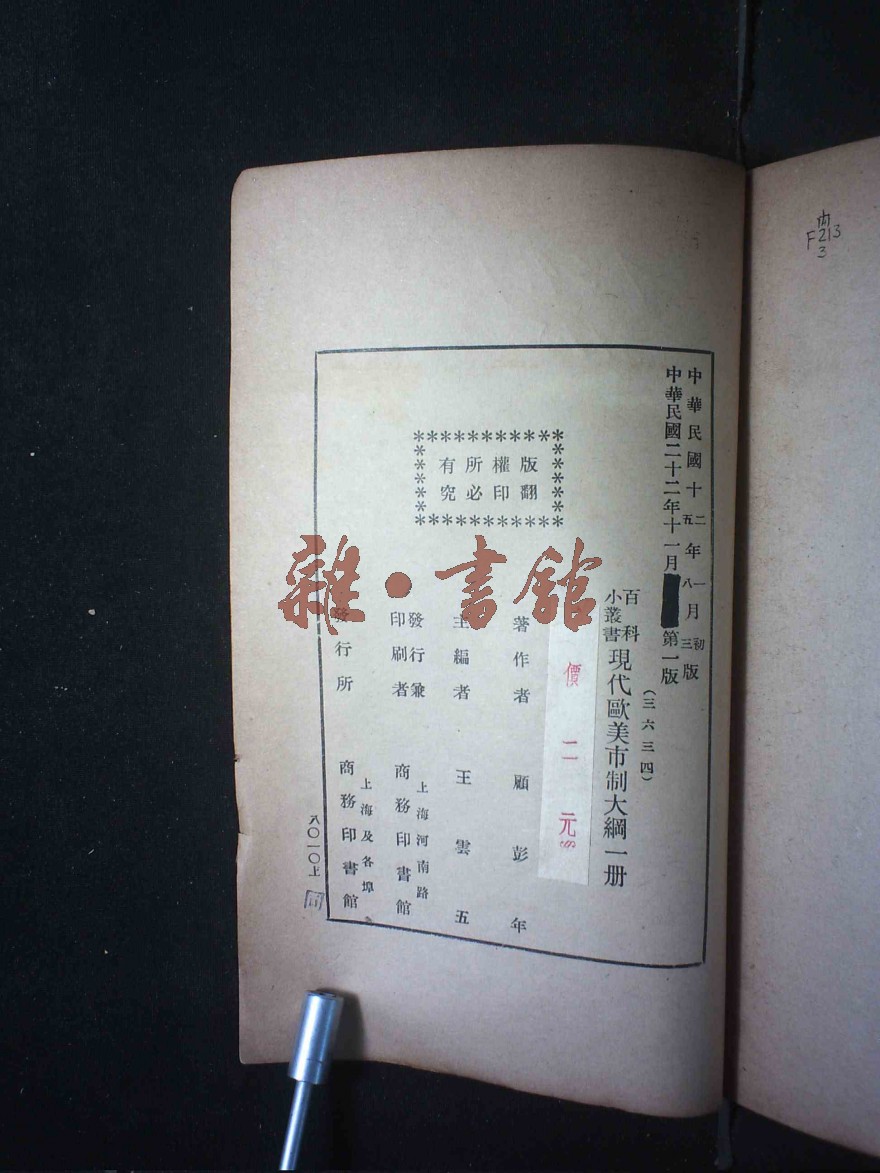 中華民國十二年一月初版
五八三
中華民國二十二年十一月第一版
(三六三四)
百科
小叢書
現代歐美市制大綱一册
價二元
著作者 顧彭年
主編者 王雲五
發行兼
印刷者
上海河南路
商務印書館
發行所
上海及各埠
商務印書館
版權所有
翻印必究
八〇一〇上
雜·書館
内
F213
3